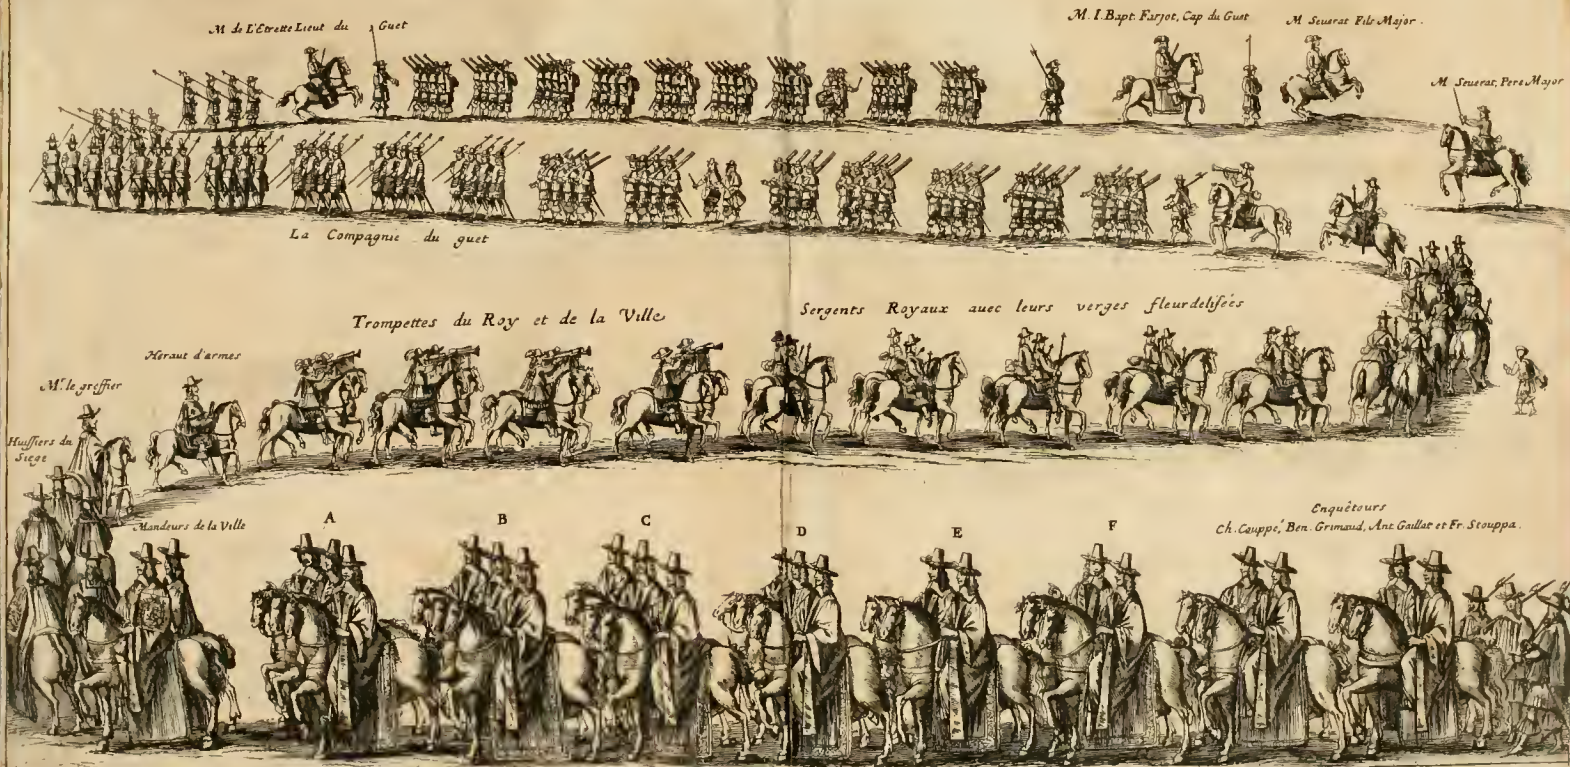 M de L'Etrette Lieut du Guet
M. I. Bapt. Farjot, Cap du Guet
M Seuerat Fils Major.
M Seuerat, Pere Major
La Compagnie du guet
Trompettes du Roy et de la Ville
Sergents Royaux auec leurs verges fleurdelisées
Héraut d'armes
Mr. le greffier
Huissiers du
Siege
Mandeurs de la Ville
A
B
C
D
E
F
Enquêtours
Ch. Couppé, Ben. Grimaud, Ant. Gaillat et Fr. Stouppa.